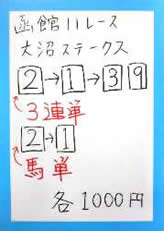 函館11レース
大沼ステークス
2→1→39
3連単
2→1
馬単
各1000円